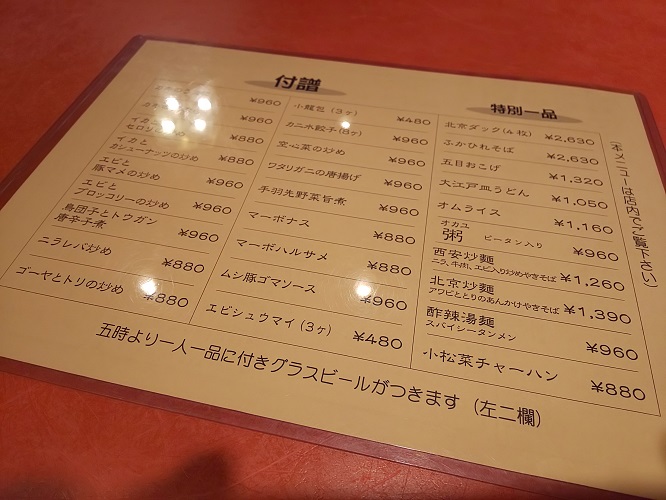 付譜
¥960
¥960
イカ
セロリ
¥880
イカと
カシューナッツの炒め ¥880
エビと
豚マメの炒め ¥960
エビと
ブロッコリーの炒め ¥960
鳥団子とトウガン
唐辛子煮 ¥960
ニラレバ炒め ¥880
ゴーヤとトリの炒め ¥880
小籠包(3ヶ) ¥480
カニ水餃子(8ヶ) ¥960
空心菜の炒め ¥960
ワタリガニの唐揚げ ¥960
手羽先野菜旨煮 ¥960
マーボナス ¥880
マーボハルサメ ¥880
ムシ豚ゴマソース ¥960
エビシュウマイ(3ヶ) ¥480
特別一品
北京ダック(4枚) ¥2,630
ふかひれそば ¥2,630
五目おこげ ¥1,320
大江戸皿うどん ¥1,050
オムライス ¥1,160
オカユ
粥 ピータン入り ¥960
西安炒麺
ニラ、牛挽、エビ入り炒めやきそば ¥1,260
北京炒麺
アワビととりのあんかけやきそば ¥1,390
酢辣湯麺
スパイシータンメン ¥960
小松菜チャーハン ¥880
(本メニューは店内でご覧下さい)
五時より一人一品に付きグラスビールがつきます(左二欄)